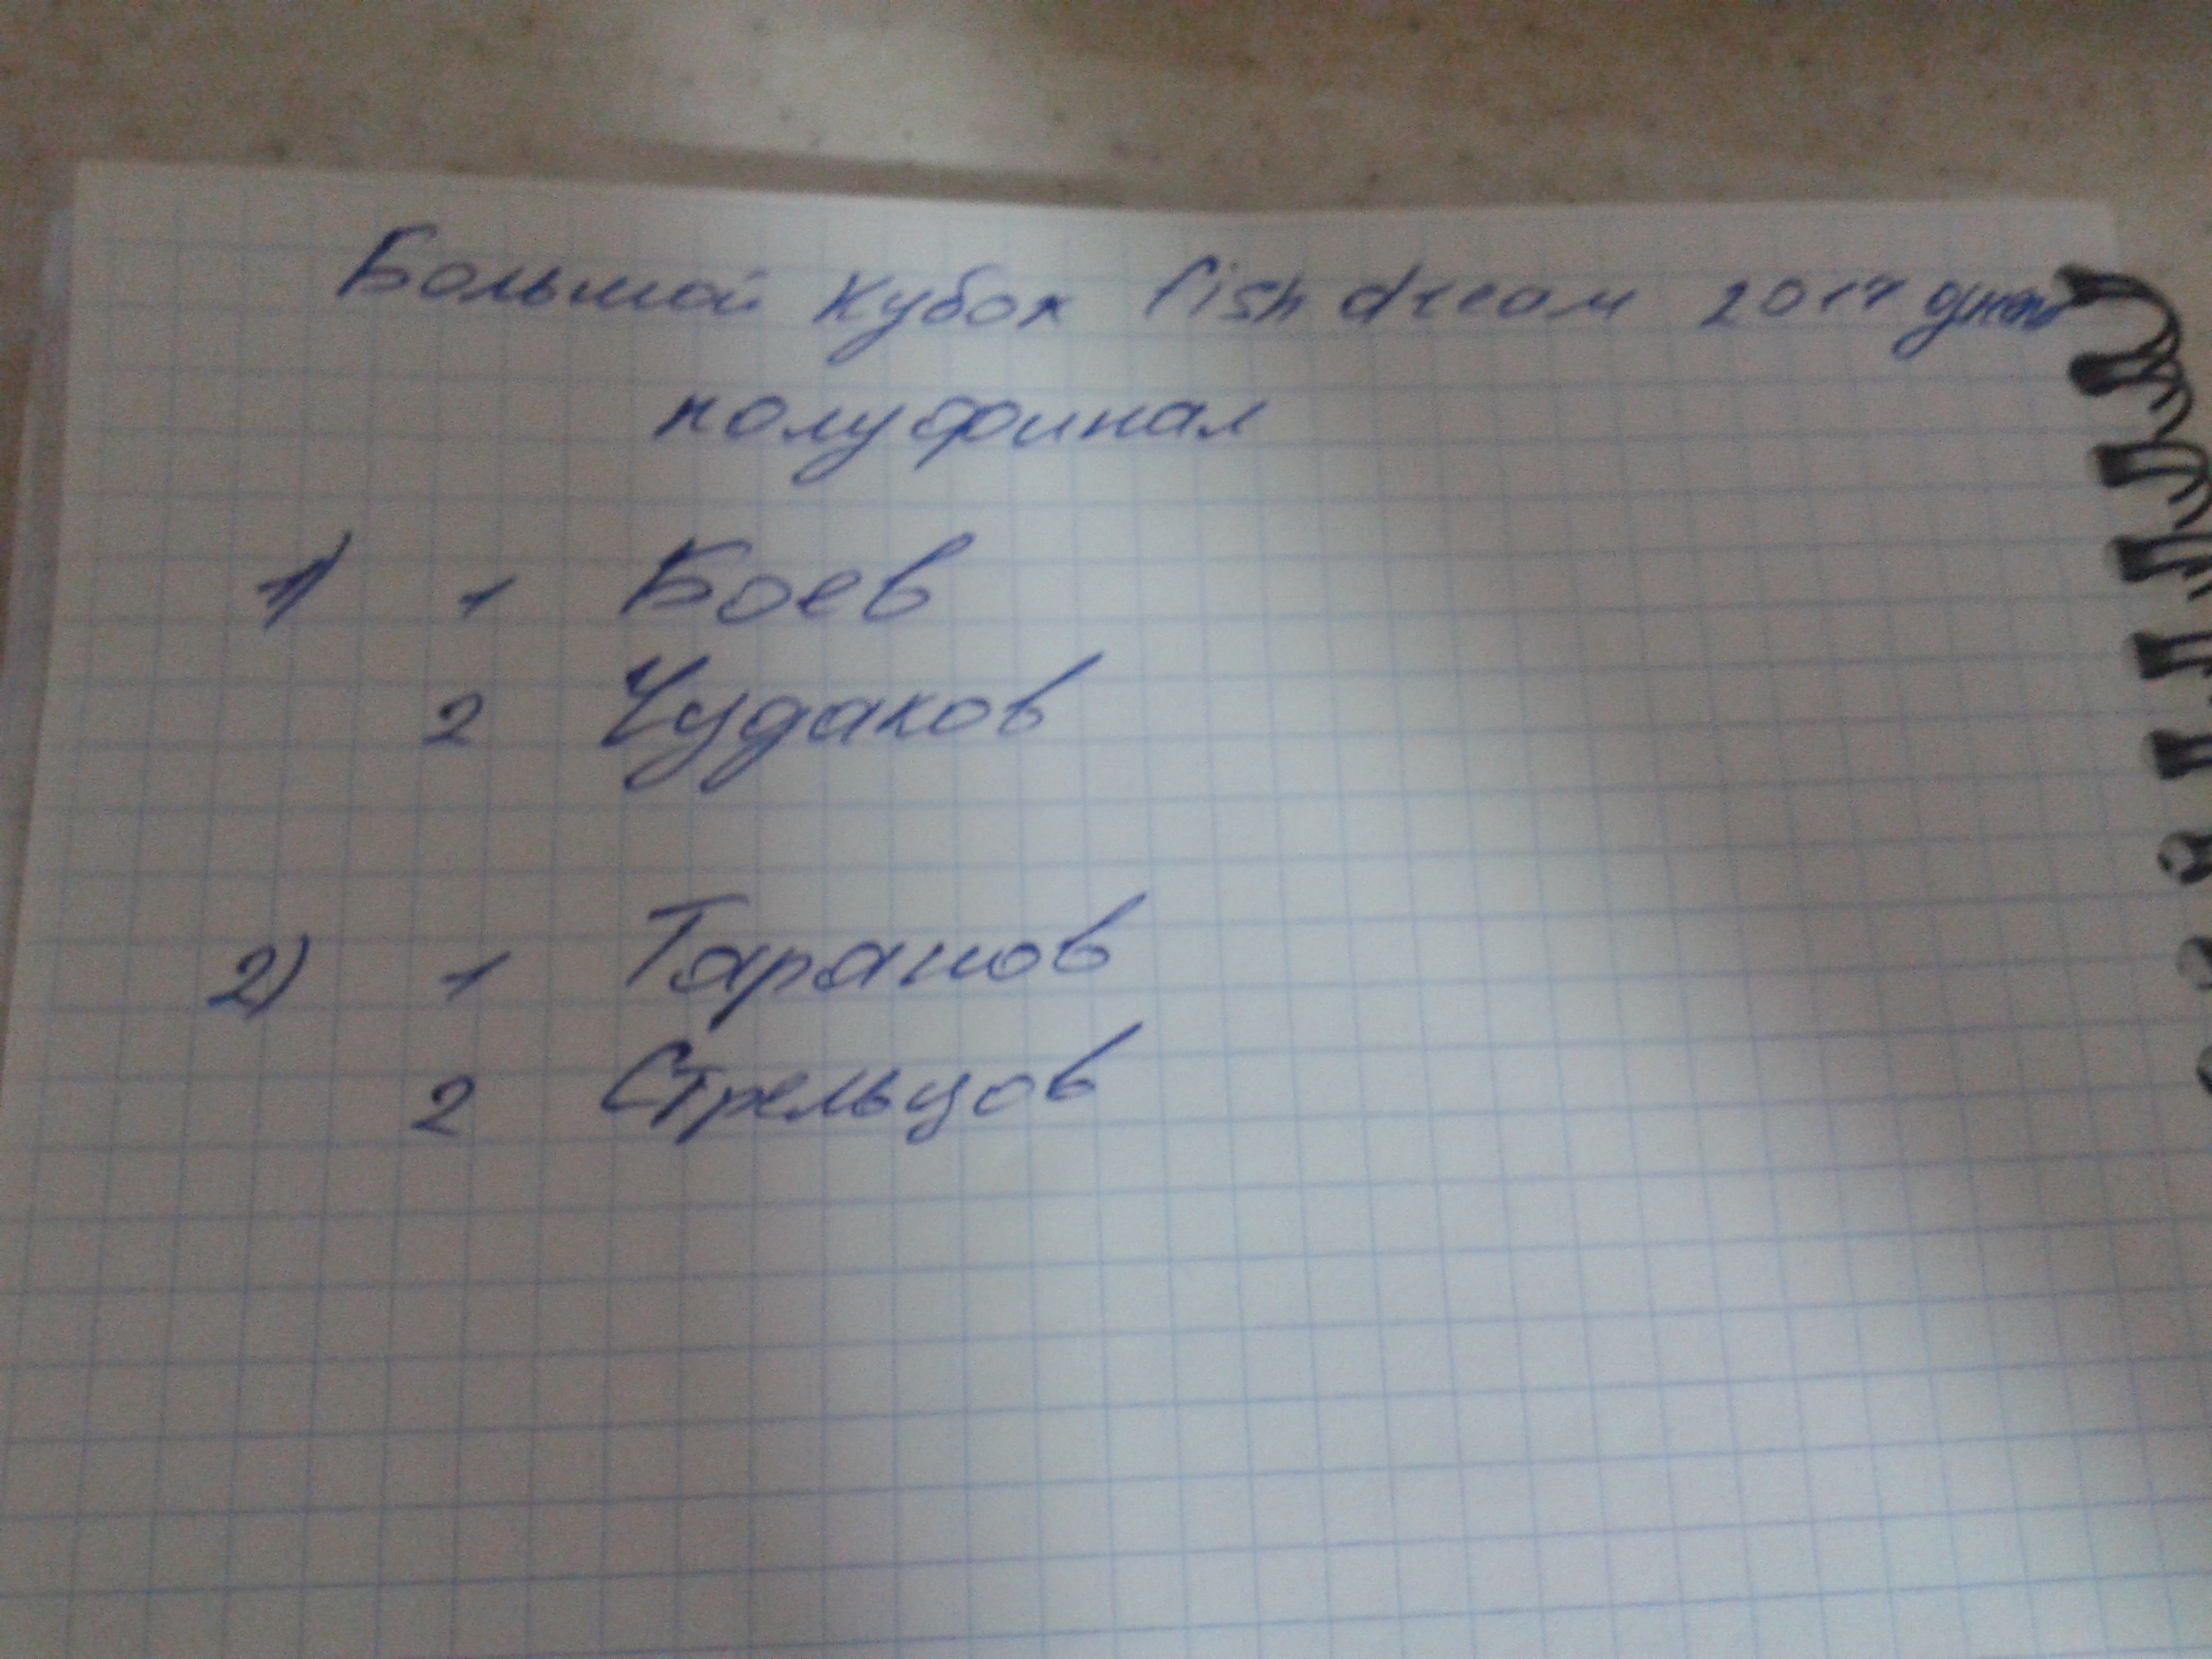 Большой Кубок fish dream 2017
полуфинал
1) 1 Боев
2 Чудаков
2) 1 Таранов
2 Стрельцов